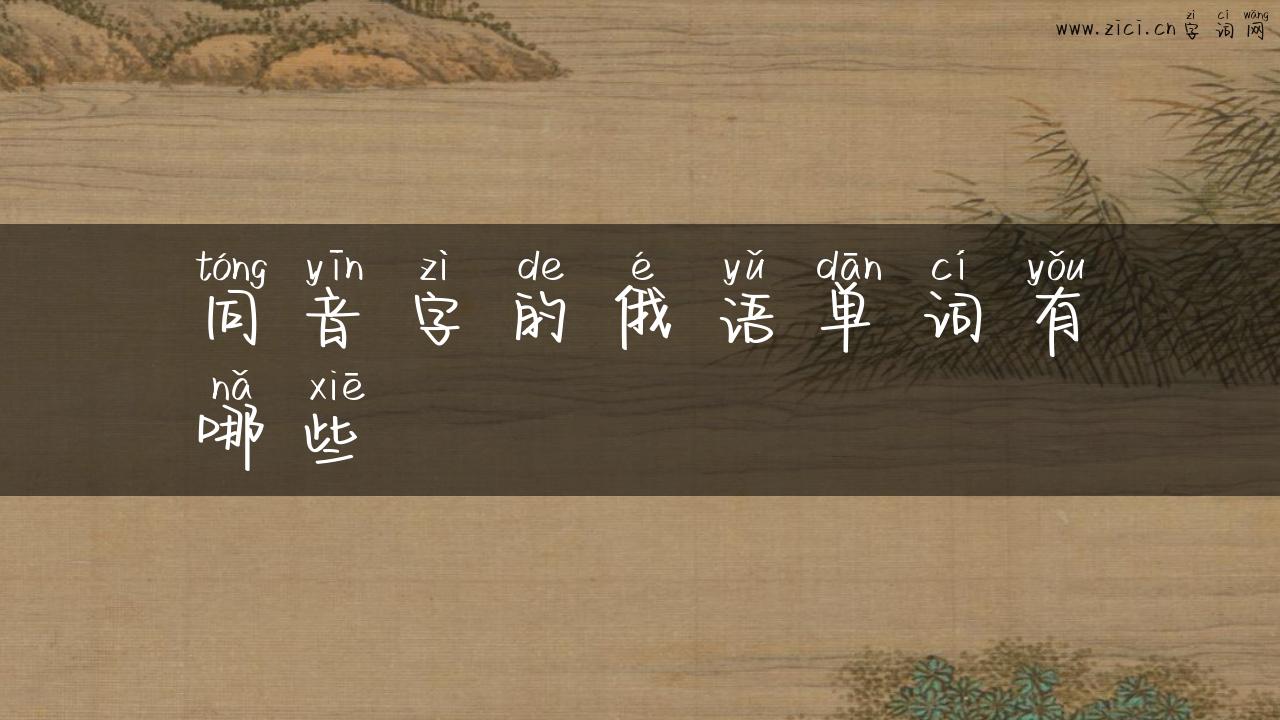 zì cí wǎng
www.zici.cn 字词网
tóng yīn zì de é yǔ dān cí yǒu
同音字的俄语单词有
nǎ xiē
哪些